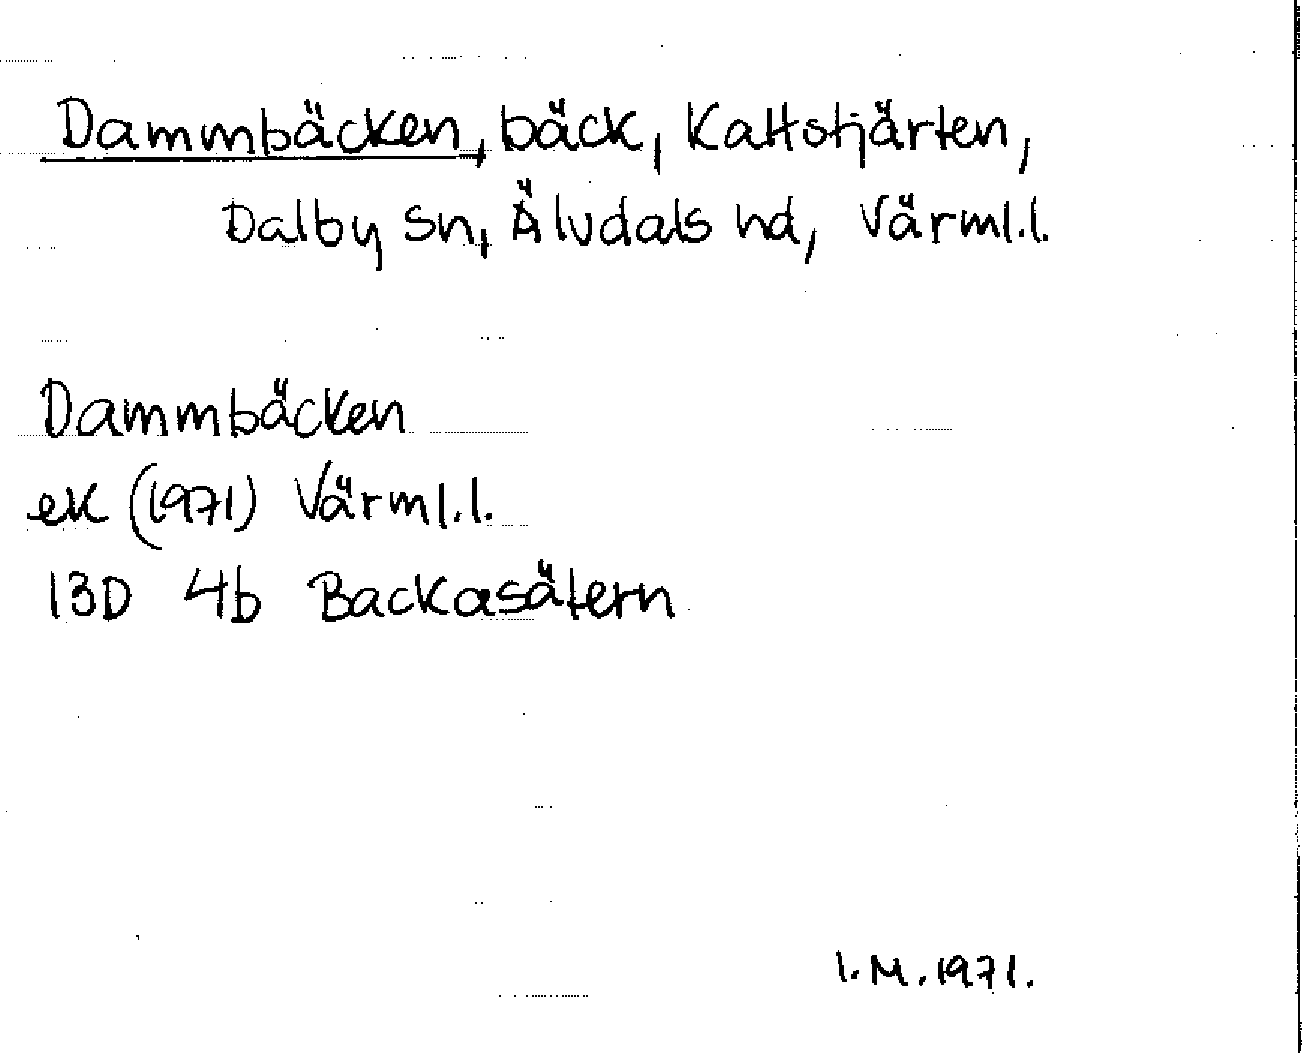 Dammbäcken, bäck, Kattstjärten,
Dalby sn, Älvdals hd, Värml.l.
Dammbäcken
ek (1971) Värml.l.
13D 4b Backasätern
I.M.1971.